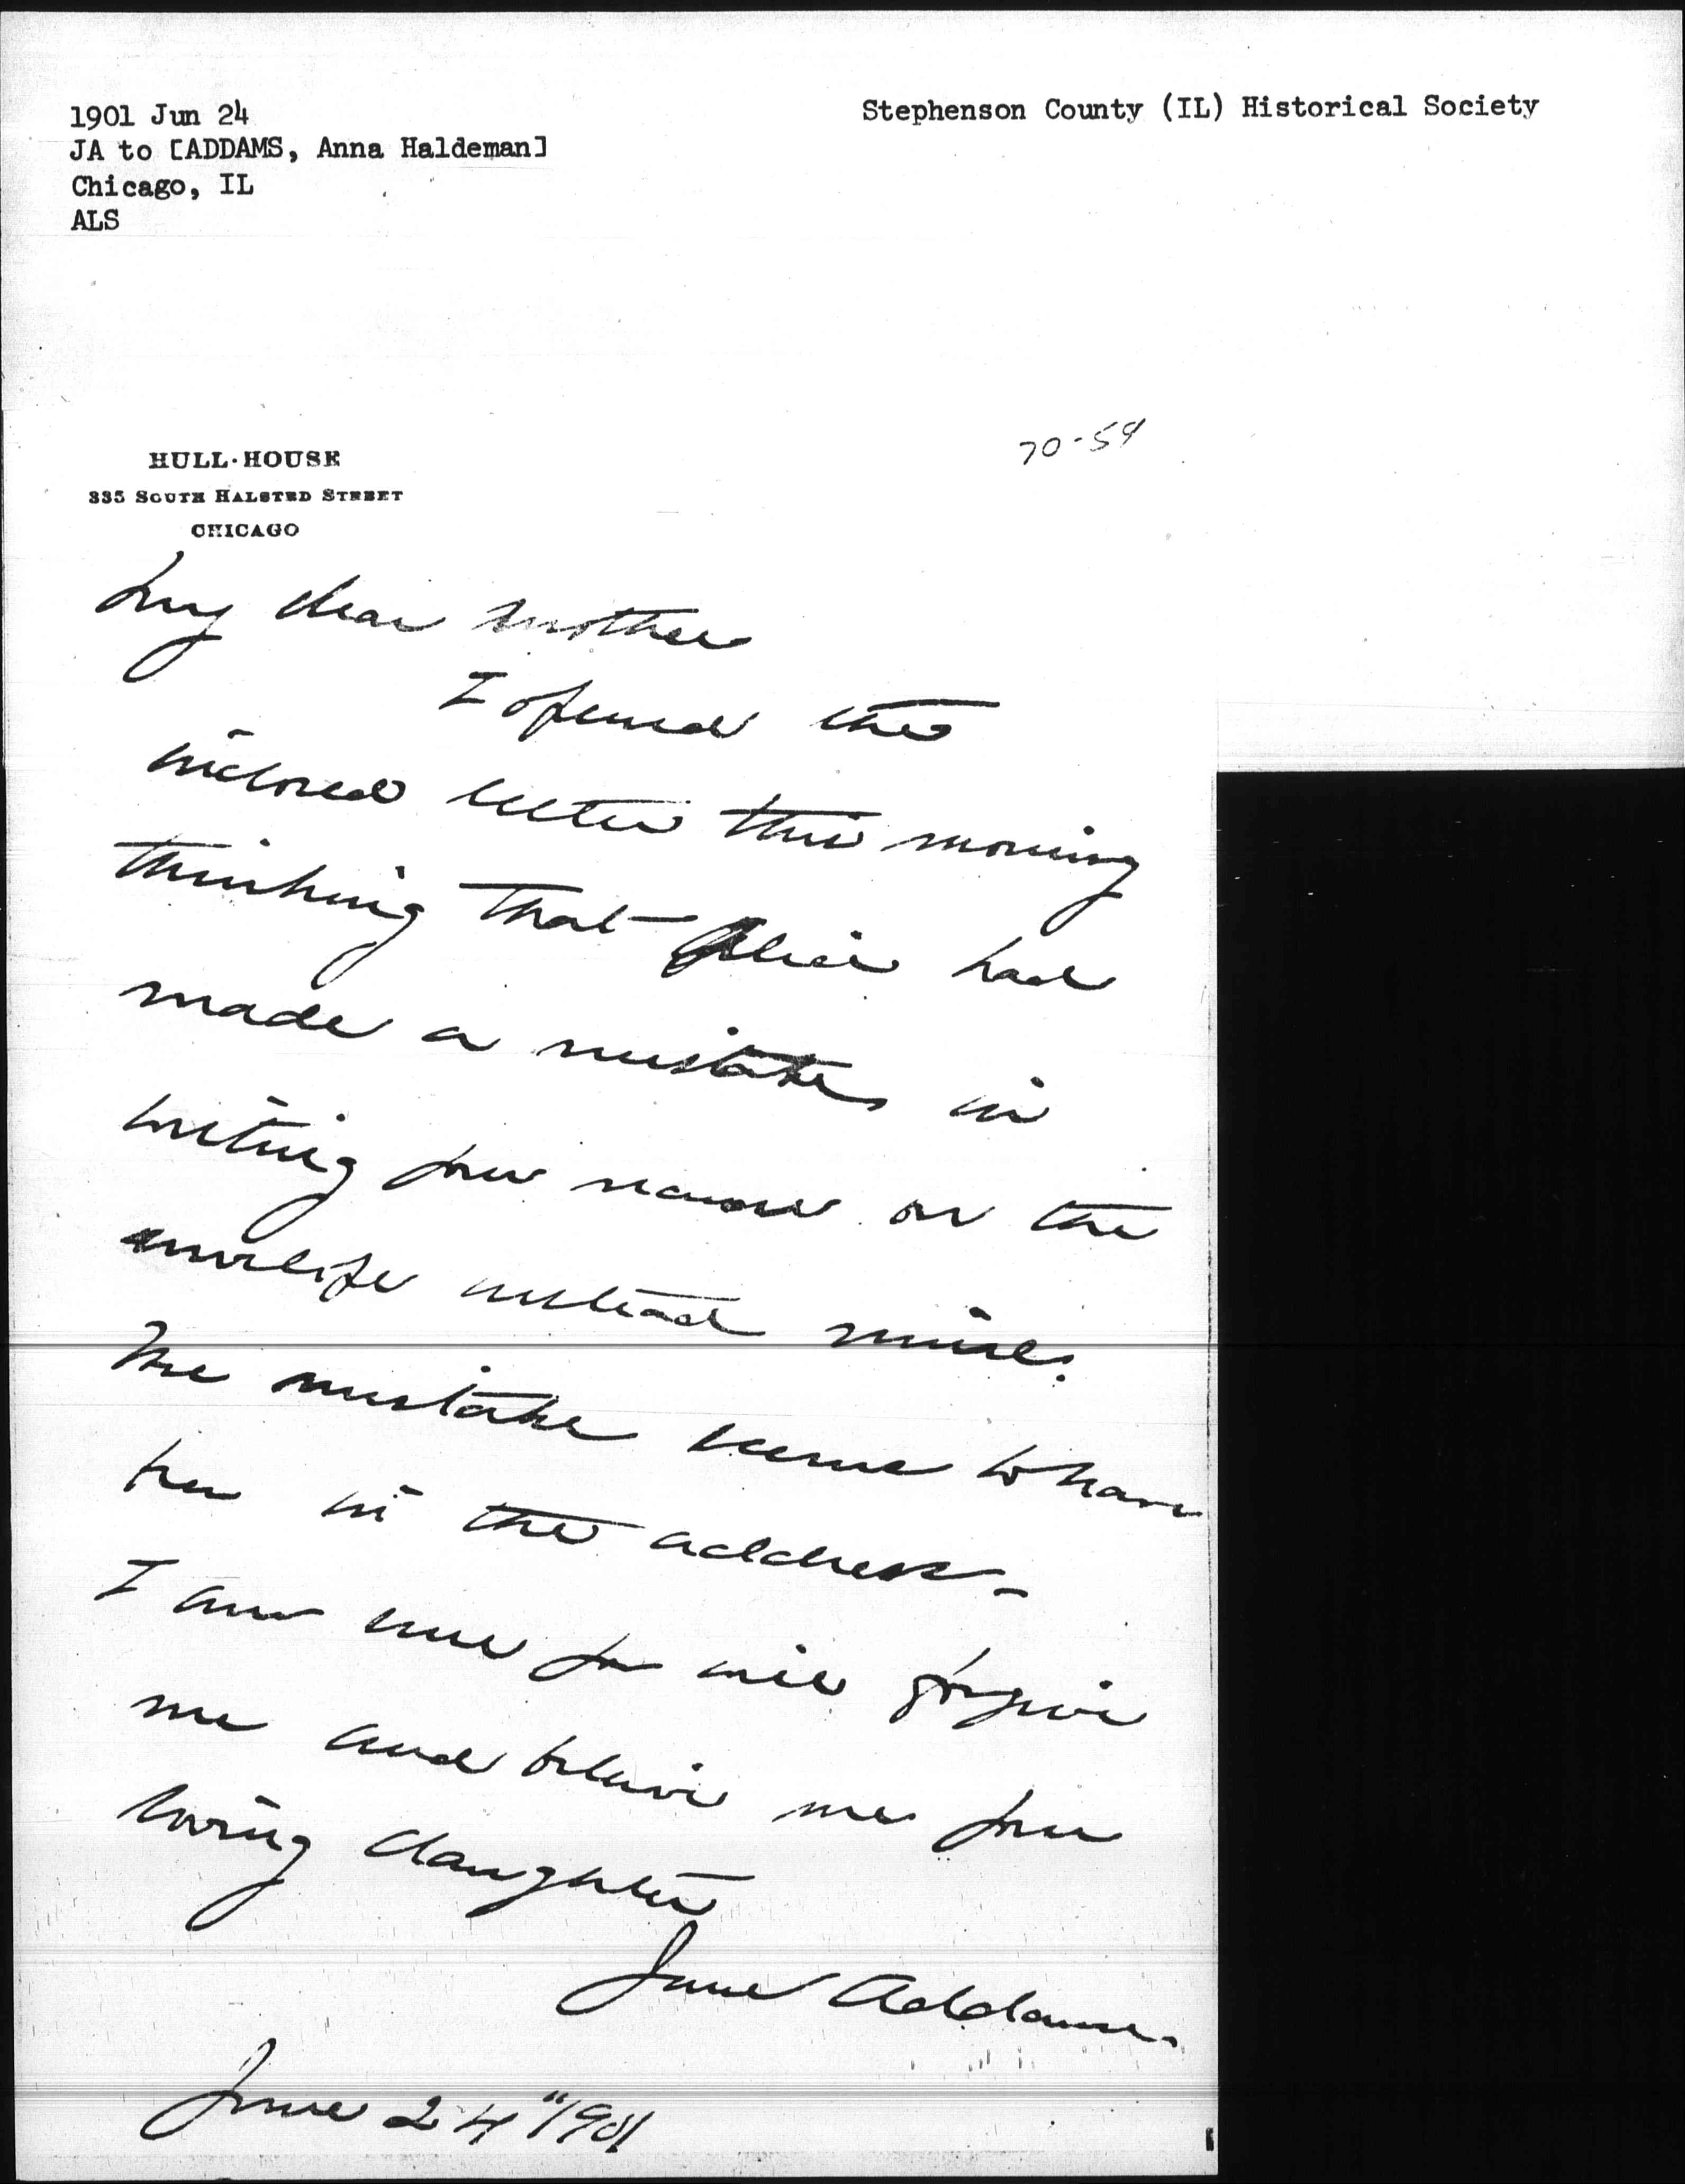 1901 Jun 24
JA to [ADDAMS, Anna Haldeman]
Chicago, IL
ALS
Stephenson County (IL) Historical Society
70-54
HULL·HOUSE
335 SOUTH HALSTED STREET
CHICAGO
My dear mother
I opened the
inclosed letter this morning
thinking that Alice had
made a mistake in
writing your name on the
envelope instead mine.
The mistake seems to have
been in the address -
I am sure you will forgive
me and believe me your
loving daughter
Jane Addams.
June 24" 1901